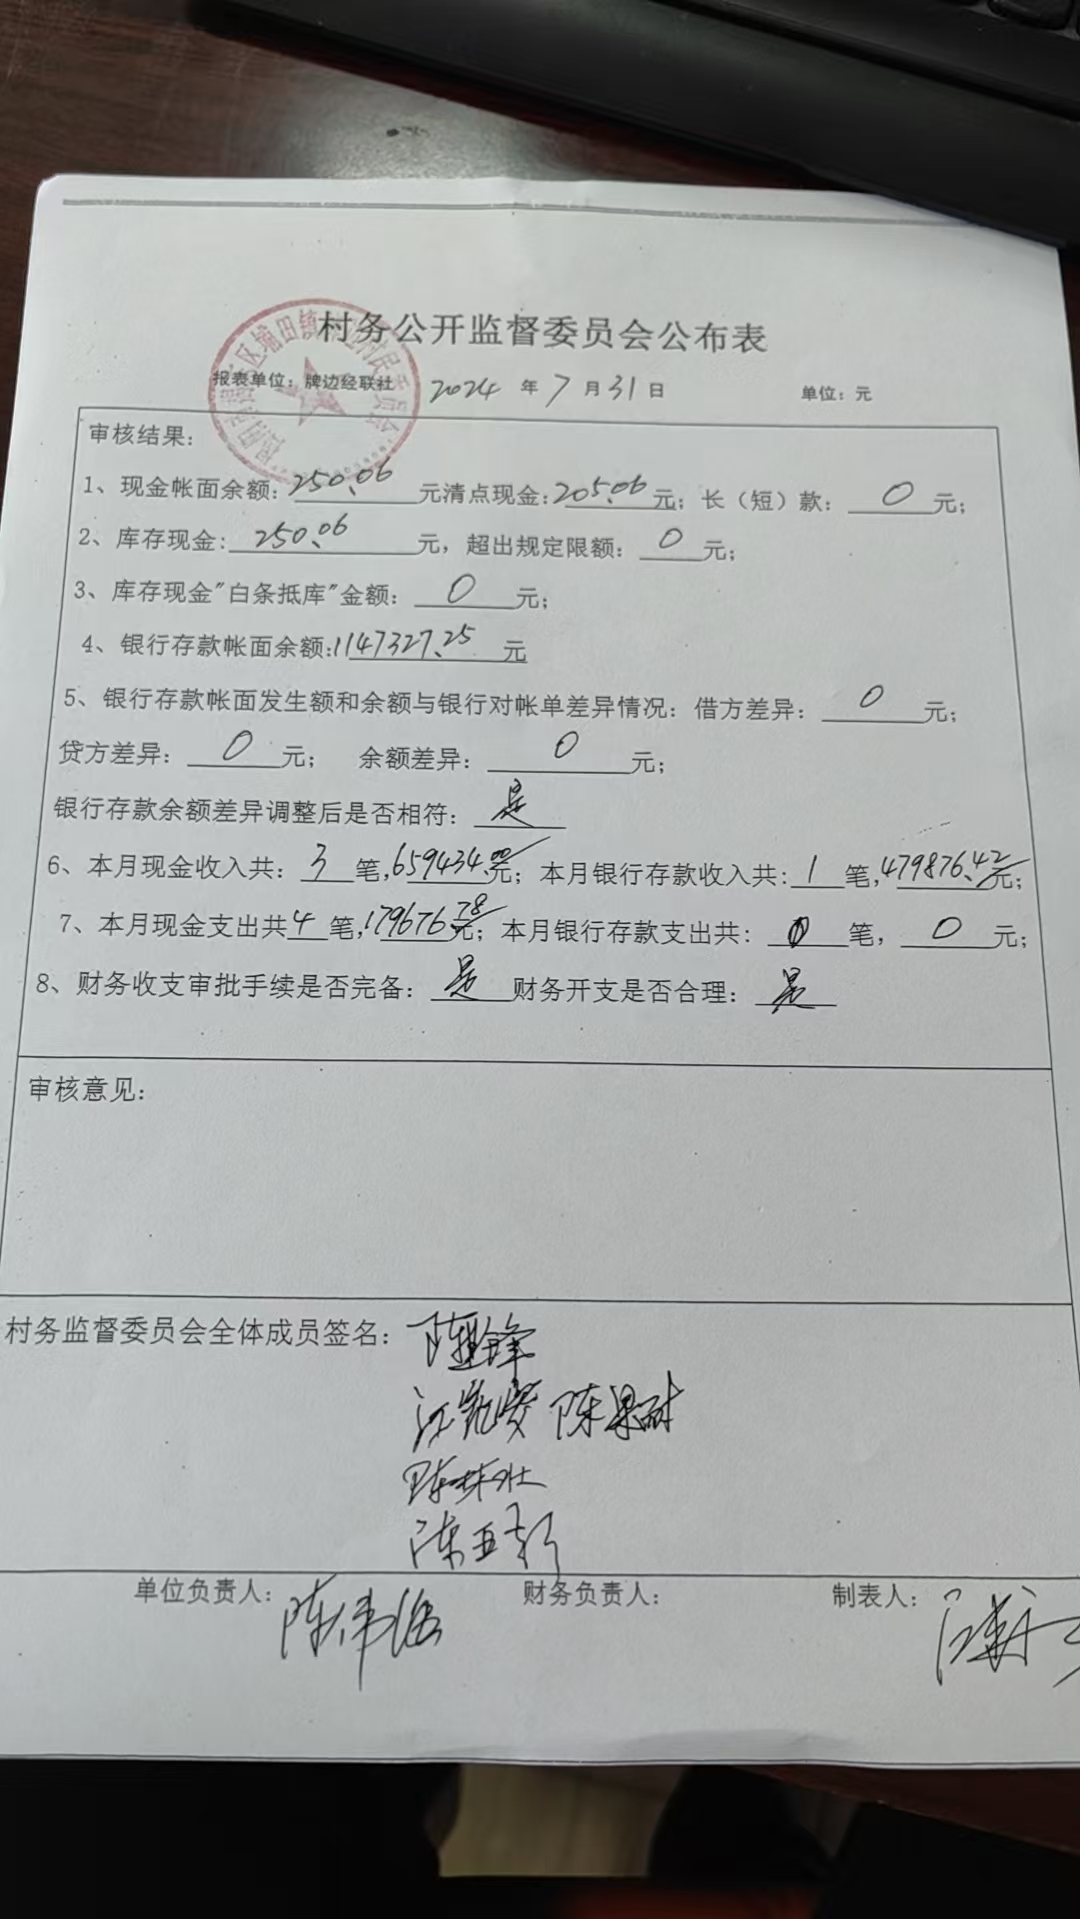 村务公开监督委员会公布表
报表单位：牌边经联社 2024 年 7 月 31 日 单位：元
审核结果：
1、现金帐面余额：250.06元清点现金：205.06元；长（短）款：0元；
2、库存现金：250.06元，超出规定限额：0元；
3、库存现金"白条抵库"金额：0元；
4、银行存款帐面余额：1147327.25元
5、银行存款帐面发生额和余额与银行对帐单差异情况：借方差异：0元；
贷方差异：0元； 余额差异：0元；
银行存款余额差异调整后是否相符：是
6、本月现金收入共：3笔，659434.00元；本月银行存款收入共：1笔，479876.42元；
7、本月现金支出共4笔，179676.78元；本月银行存款支出共：0笔，0元；
8、财务收支审批手续是否完备：是 财务开支是否合理：是
审核意见：
村务监督委员会全体成员签名：
单位负责人：陈伟 财务负责人： 制表人：